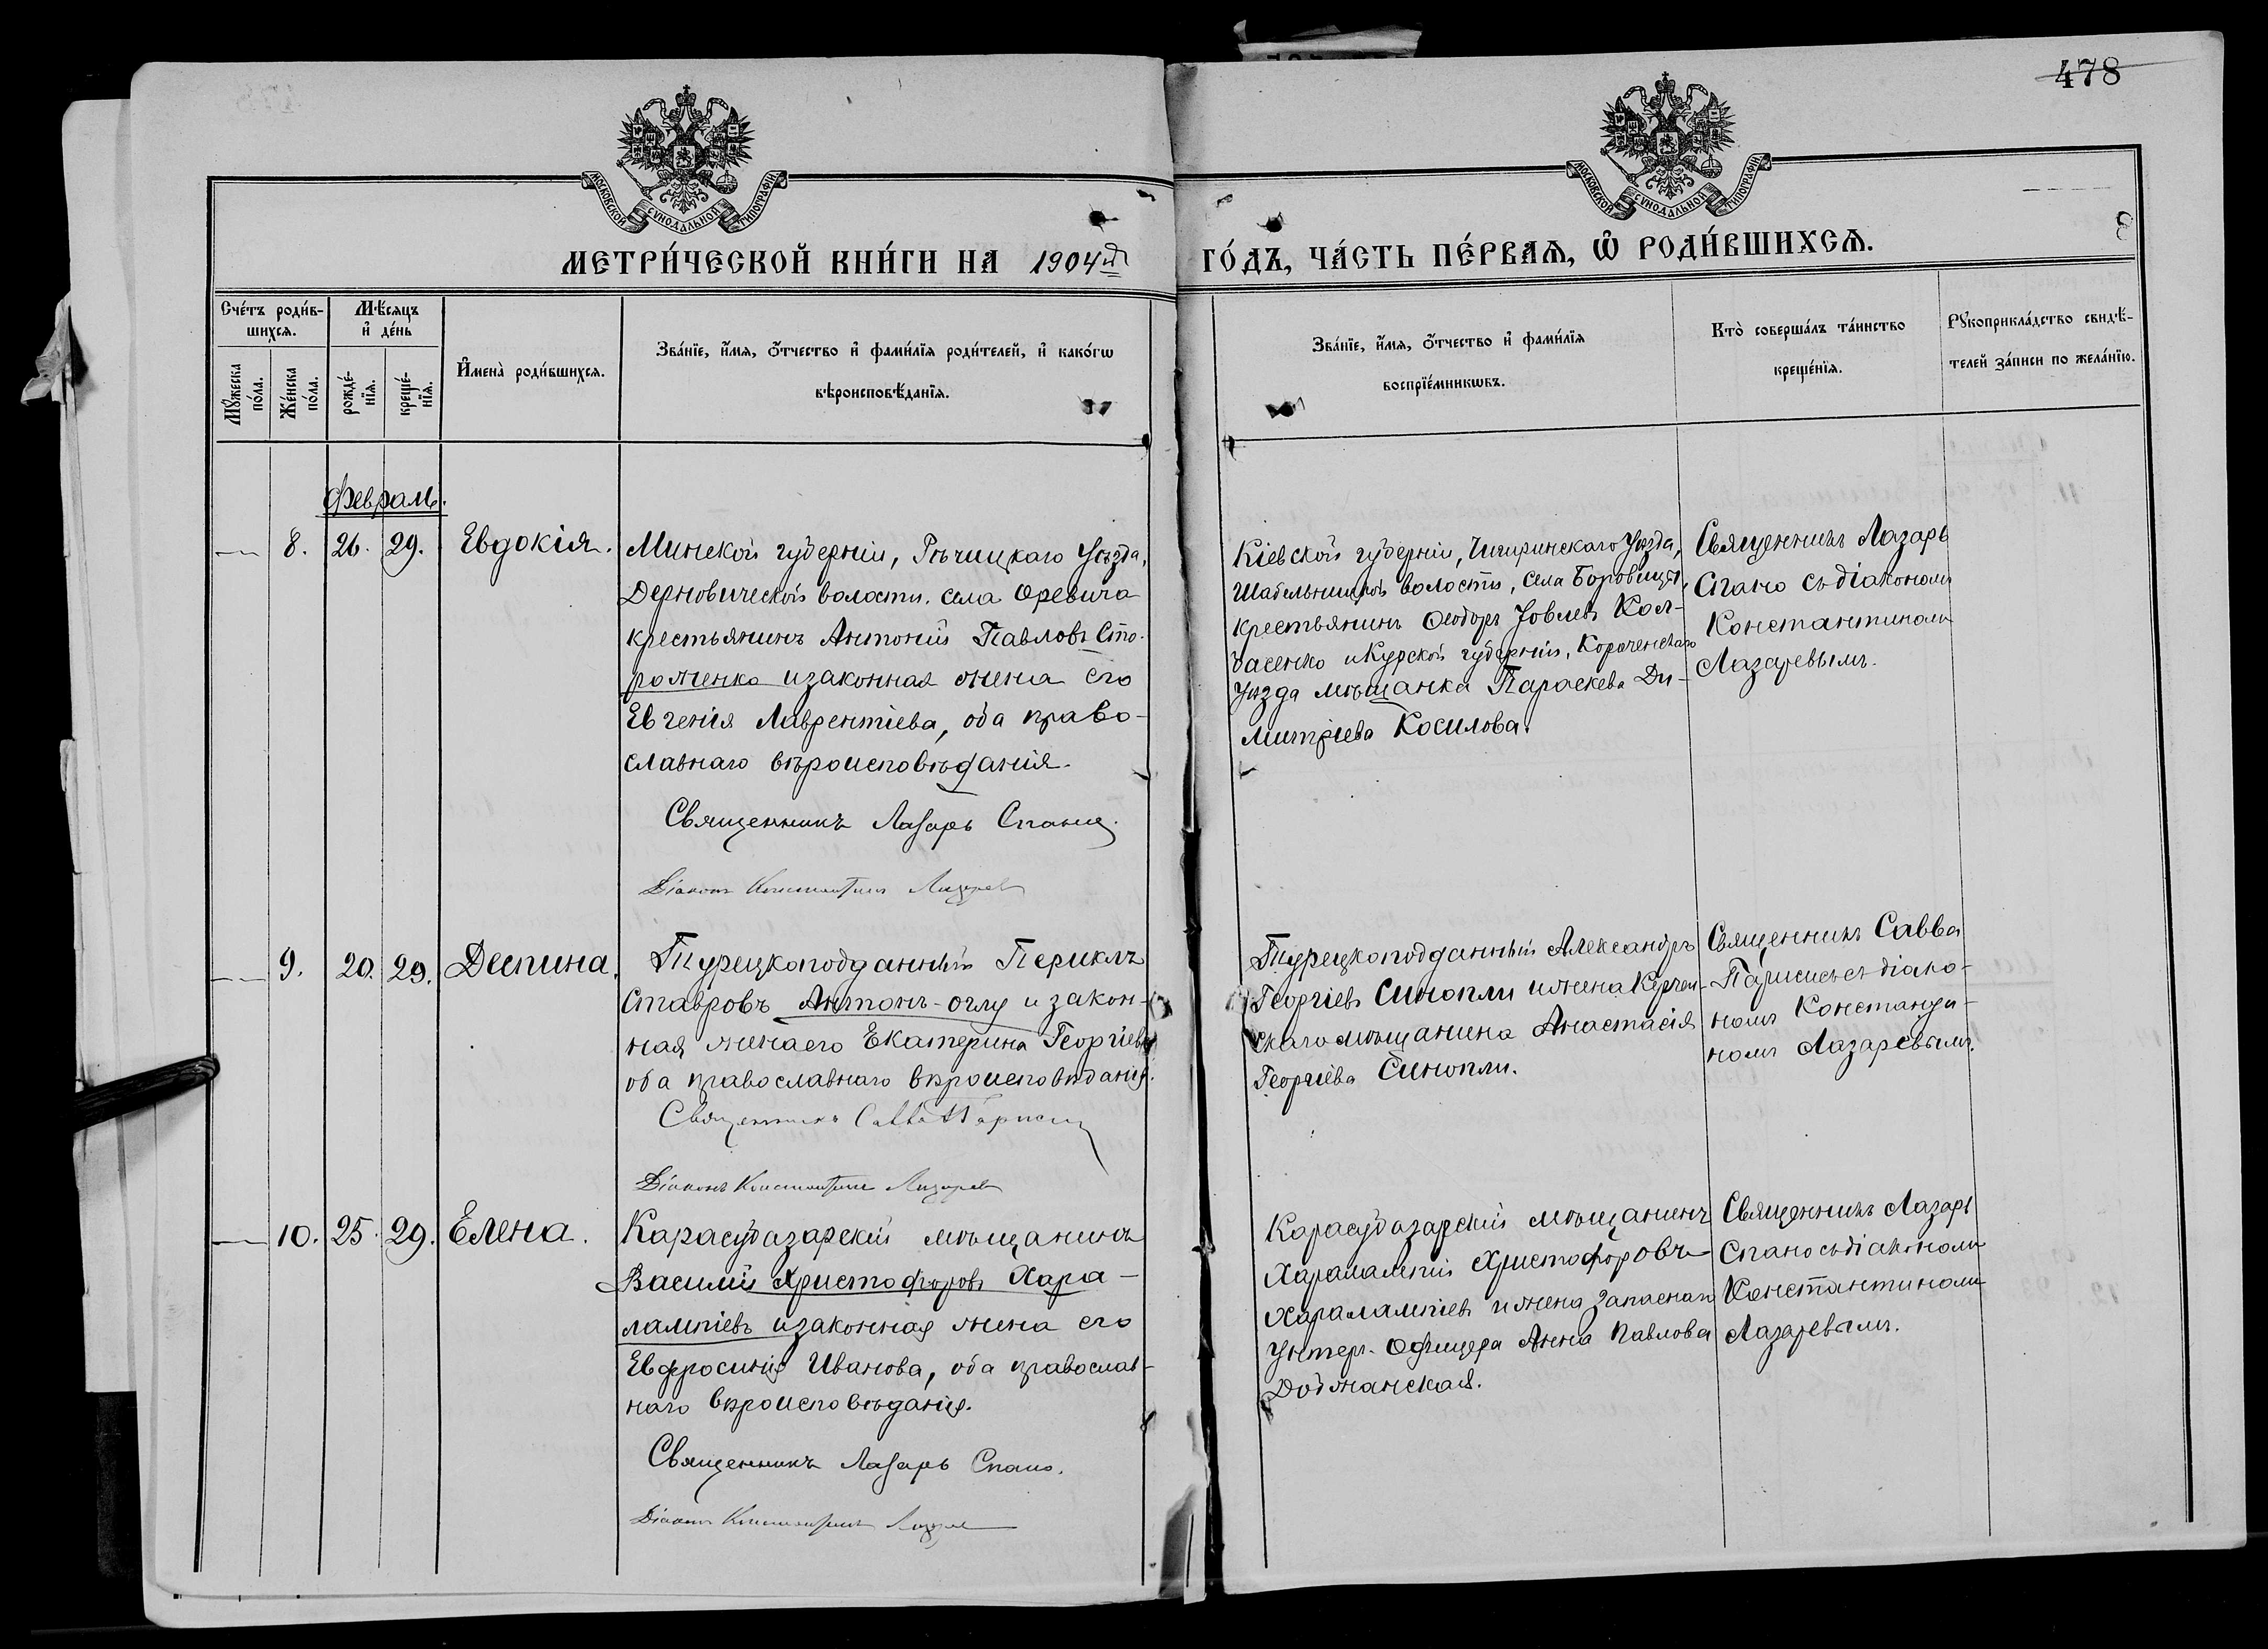 478
МОСКОВСКОЙ СѴНОДАЛЬНОЙ ТИПОГРАФІИ
МОСКОВСКОЙ СѴНОДАЛЬНОЙ ТИПОГРАФІИ
МЕТРИ́ЧЕСКОЙ КНИ́ГИ НА 1904й
ГО́ДЪ, ЧА́СТЬ ПЕ́РВАѦ, Ѡ҆ РОДИ́ВШИХСѦ.
Сче́тъ роди́в-
шихсѧ.
Мꙋ́жеска
по́ла.
Же́нска
по́ла.
Мѣ́сѧцъ
и҆ де́нь
рожде́-
нїѧ.
креще́-
нїѧ.
И҆мена̀ роди́вшихсѧ.
Зва́нїе, и҆́мѧ, ѻ҆́тчество и҆ фами́лїѧ роди́телей, и҆ како́гѡ
вѣроисповѣ́данїѧ.
Зва́нїе, и҆́мѧ, ѻ҆́тчество и҆ фами́лїѧ
воспрїе́мникѡвъ.
Кто̀ соверша́лъ та́инство
креще́нїѧ.
Рꙋкоприкла́дство свидѣ́-
телей за́писи по жела́нїю.
Февраль.
8. 26. 29. Евдокія.
Минской губерніи, Рѣчицкаго Уѣзда,
Дерновической волости, села Оревича
крестьянинъ Антоній Павловъ Сто-
роженко и законная жена его
Евгенія Лаврентіева, оба право-
славнаго вѣроисповѣданія.
Священникъ Лазарь Спано.
Діаконъ Константинъ Лазарев
Кіевской губерніи, Чигиринскаго Уѣзда,
Шабельницкой волости, села Боровицы,
крестьянинъ Ѳеодоръ Іовлевъ Кол-
басенко и Курской губерніи, Короченскаго
Уѣзда мѣщанка Параскева Ди-
митріева Косилова.
Священникъ Лазарь
Спано съ діакономъ
Константиномъ
Лазаревымъ.
9. 20. 29. Деспина.
Турецкоподданный Периклъ
Ставровъ Антонъ-оглу и закон-
ная жена его Екатерина Георгіева
оба православнаго вѣроисповѣданія.
Священникъ Савва Париси
Діаконъ Константинъ Лазарев
Турецкоподданный Александръ
Георгіевъ Синопли и жена Керчен-
скаго мѣщанина Анастасія
Георгіева Синопли.
Священникъ Савва
Парисисъ съ діако-
номъ Константи-
номъ Лазаревымъ.
10. 25. 29. Елена.
Карасубазарскій мѣщанинъ
Василій Христофоровъ Хара-
лампіевъ и законная жена его
Евфросинія Иванова, оба православ-
наго вѣроисповѣданія.
Священникъ Лазарь Спано.
Діаконъ Константинъ Лазарев
Карасубазарскій мѣщанинъ
Харалампій Христофоровъ
Харалампіевъ и жена запаснаго
Унтеръ-Офицера Анна Павлова
Добжанская.
Священникъ Лазарь
Спано съ діакономъ
Константиномъ
Лазаревымъ.